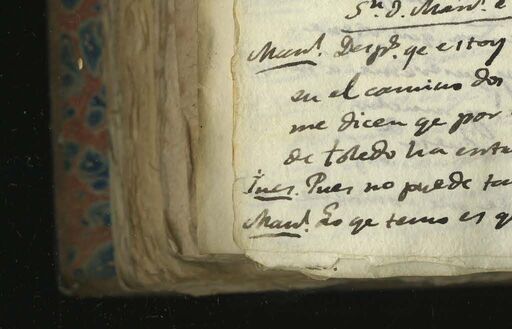 Sn. D. Man.l e
Man.l Desps. qe estoy
en el camino dos
me dicen qe por
de toledo ha entr
Jues. Pues no puede ta
Man.l Lo qe temo es q